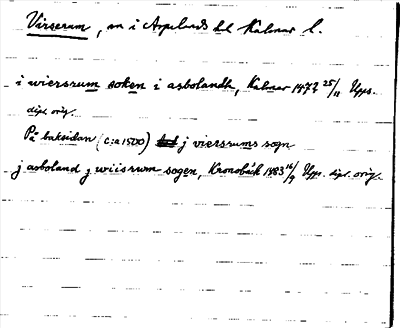 Virserum, sn i Aspelands hd Kalmar l.
i wiersrum soken i asbolandh, Kalmar 1477 25/11 Upps.
dipl. orig.
På baksidan (c:a 1500) j viersrums sogn
j asboland j wiisrum sogen, Kronobäck 1483 16/9 Upps. dipl. orig.